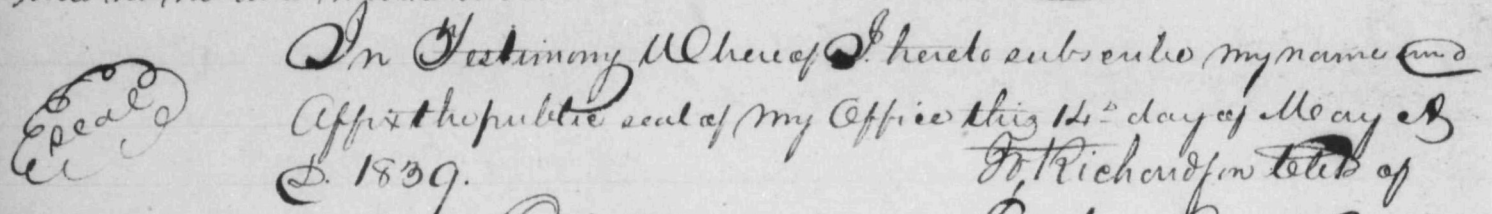 In Testimony Whereof I hereto subscribe my name and
Seal
Affix the public seal of my Office this 14th day of May A
D. 1839.
Richardson Clk of